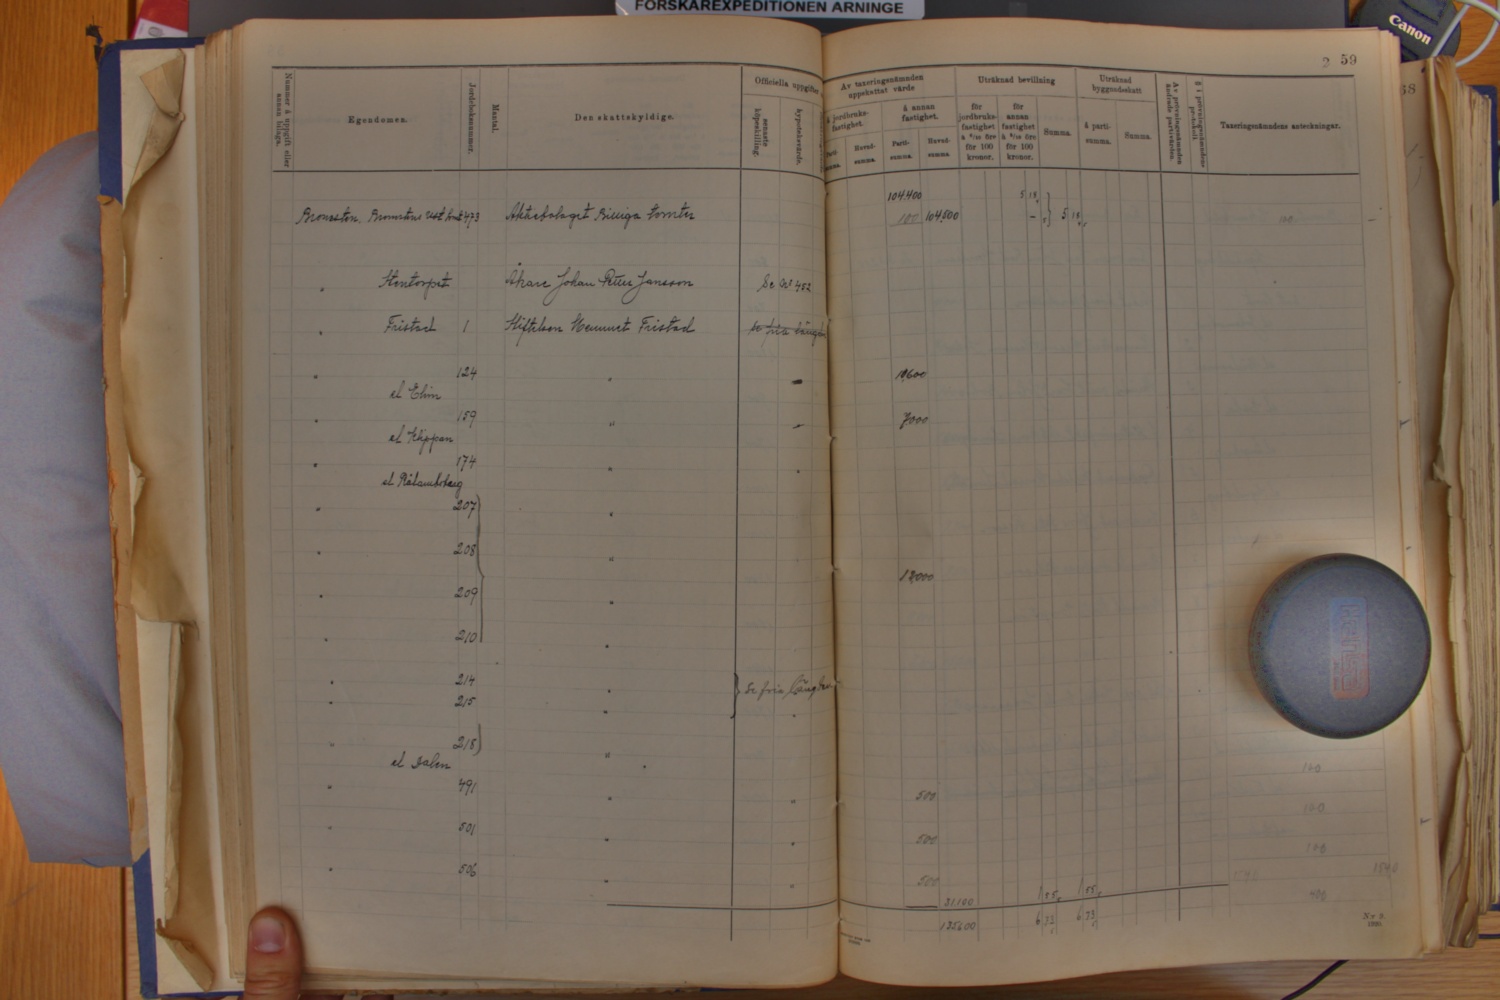 FORSKAREXPEDITIONEN ARNINGE
Canon
2 59
Nummer å uppgift eller annan bilaga.
Egendomen.
Jordeboksnummer.
Mantal.
Den skattskyldige.
Officiella uppgifter
senaste köpeskilling.
hypoteksvärde.
Av taxeringsnämnden uppskattat värde
å jordbruksfastighet.
å annan fastighet.
Parti-summa.
Huvud-summa.
Parti-summa.
Huvud-summa.
Uträknad bevillning
för jordbruksfastighet
för 100 kronor.
för annan fastighet
för 100 kronor.
Summa.
Uträknad byggnadsskatt
å partisumma.
Summa.
Av prövningsnämnden ändrade partivärden.
§ i prövningsnämndens protokoll.
Taxeringsnämndens anteckningar.
104,400
5 18
Bromsten, 473 Aktiebolaget Billiga tomter 100 104,500 5 18 100
" Stentorpet Åkare Johan Peter Jansson Se No 452
" Fristad 1 Stiftelsen Hemmet Fristad se fria längden
" 124 " 10600
el Elim
" 159 " 7000
el Klippan
" 174 "
el Rålambsberg
" 207 "
" 208 "
12000
" 209 "
" 210 "
" 214 " Se fria längden
" 215 "
" 218 "
el Dalen
" 491 " 500 100
" 501 " 500 100
" 506 " 500 100
31100 1 55 1 55 400
135600 6 73 6 73
N:r 9.